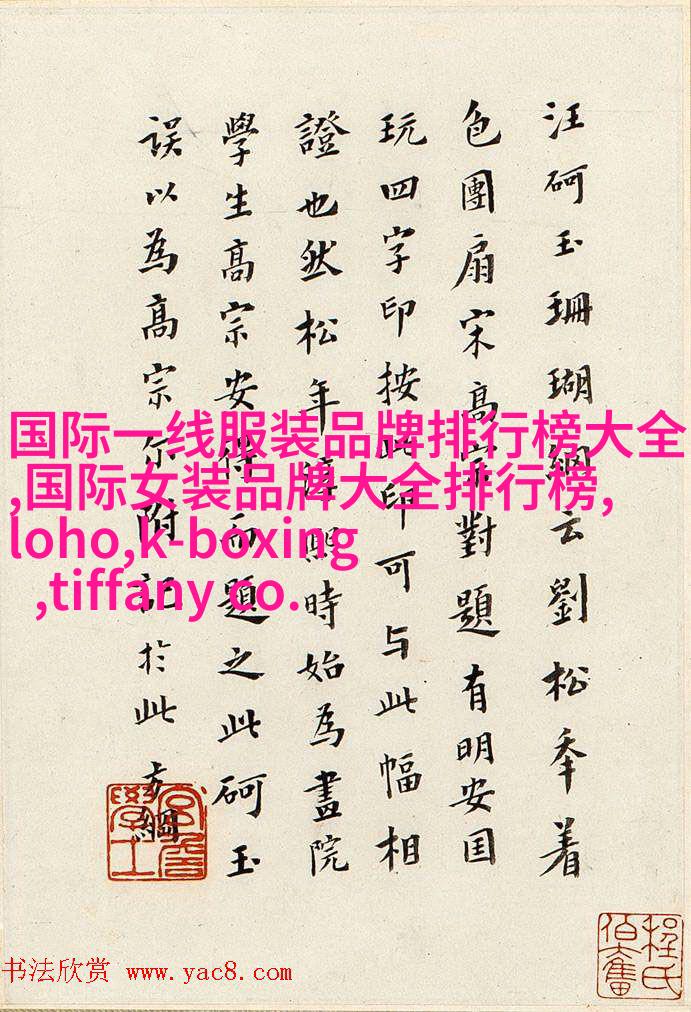 汪砢玉珊瑚網云劉松年着
色團扇宋高宗對題有明安国
玩四字印按此印可与此幅相
證也然松年淳熙時始為畫院
學生高宗安得而題之此砢玉
誤以為高宗尔附記於此 方綱
国际一线服装品牌排行榜大全
,国际女装品牌大全排行榜,
loho,k-boxing
,tiffany co.
宮詹學士
程氏伯奮
书法欣赏 www.yac8.com